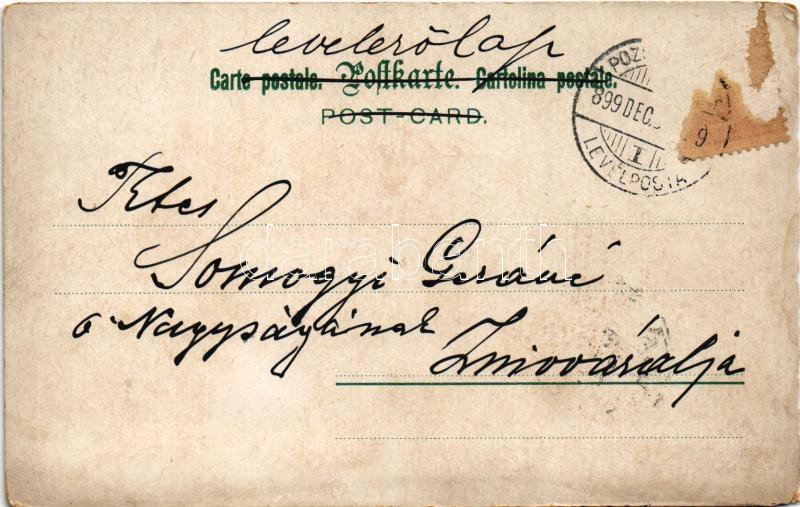 levelezőlap
Carte postale. Postkarte. Cartolina postale.
POST-CARD.
POZ
899 DEC.
9
I
LEVÉLPOSTA
Ttes
Somogyi Gézáné
ő Nagyságának
Znióváralja
darabanth